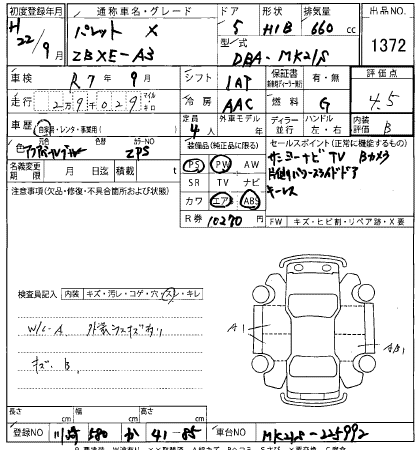 初度登録年月 通称車名・グレード ドア 形状 排気量 出品NO.
H22/9月 パレット X 5 H/B 660 cc 1372
ZBXE-A3 型式 DBA-MK21S
車検 R7年9月 シフト IAT 保証書 有・無 評価点
走行 2万9千029 マイル キロ 冷房 AAC 燃料 G 4.5
車歴 自家用・レンタ・事業用( ) 定員 4人 外車モデル年 ディーラー 並行 ハンドル 左・右 内装評価 B
色 色替 カラーNO ZPS 装備品(純正品に限る) セールスポイント(正常に機能するもの)
PS PW AW サンヨーナビ TV Bカメラ
名義変更期限 月 日迄 積載 t SR TV ナビ 片側パワースライドドア
注意事項(欠品・修復・不具合箇所および状態) カワ エアB ABS キーレス
R券 10270 円 FW キズ・ヒビ割・リペア跡・X要
検査員記入 内装 キズ・汚レ・コゲ・穴・スレ・キレ
W/C-A 外装
キズ B
A1 AB1
長さ cm 幅 cm 高さ cm
登録NO 川崎 580 か 41-85 車台NO MK21S-225992